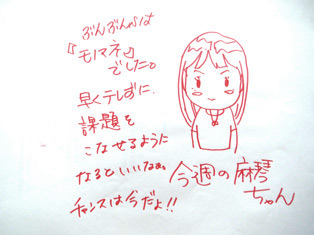 ぶんぶんvは
『モノマネ』
でした。
早くテレずに、
課題を
こなせるように
なるといいなぁ。
チャンスは今だよ!!
今週の麻琴
ちゃん